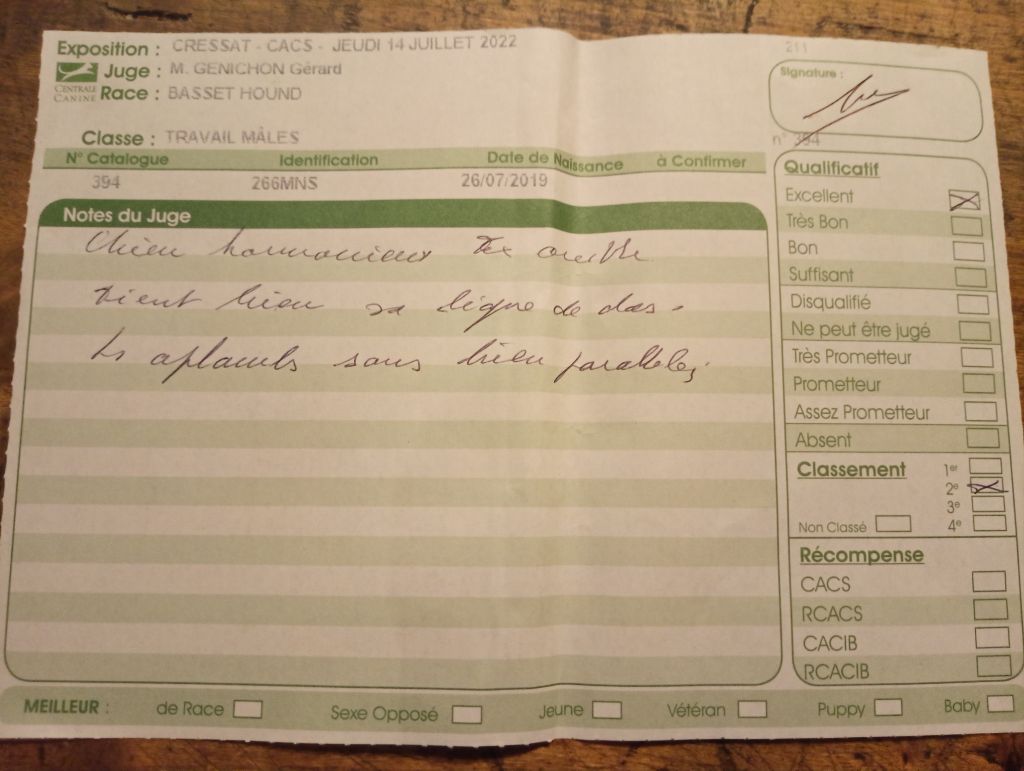 Exposition : CRESSAT - CACS - JEUDI 14 JUILLET 2022
211
CENTRALE CANINE
Juge : M. GENICHON Gérard
Race : BASSET HOUND
Signature :
Classe : TRAVAIL MÂLES
n° 394
N° Catalogue Identification Date de Naissance à Confirmer
394 266MNS 26/07/2019
Notes du Juge
Chien harmonieux
tient bien sa ligne de dos.
aplombs sans bien paralleles
Qualificatif
Excellent
Très Bon
Bon
Suffisant
Disqualifié
Ne peut être jugé
Très Prometteur
Prometteur
Assez Prometteur
Absent
Classement
1er
2e
3e
Non Classé 4e
Récompense
CACS
RCACS
CACIB
RCACIB
MEILLEUR : de Race Sexe Opposé Jeune Vétéran Puppy Baby